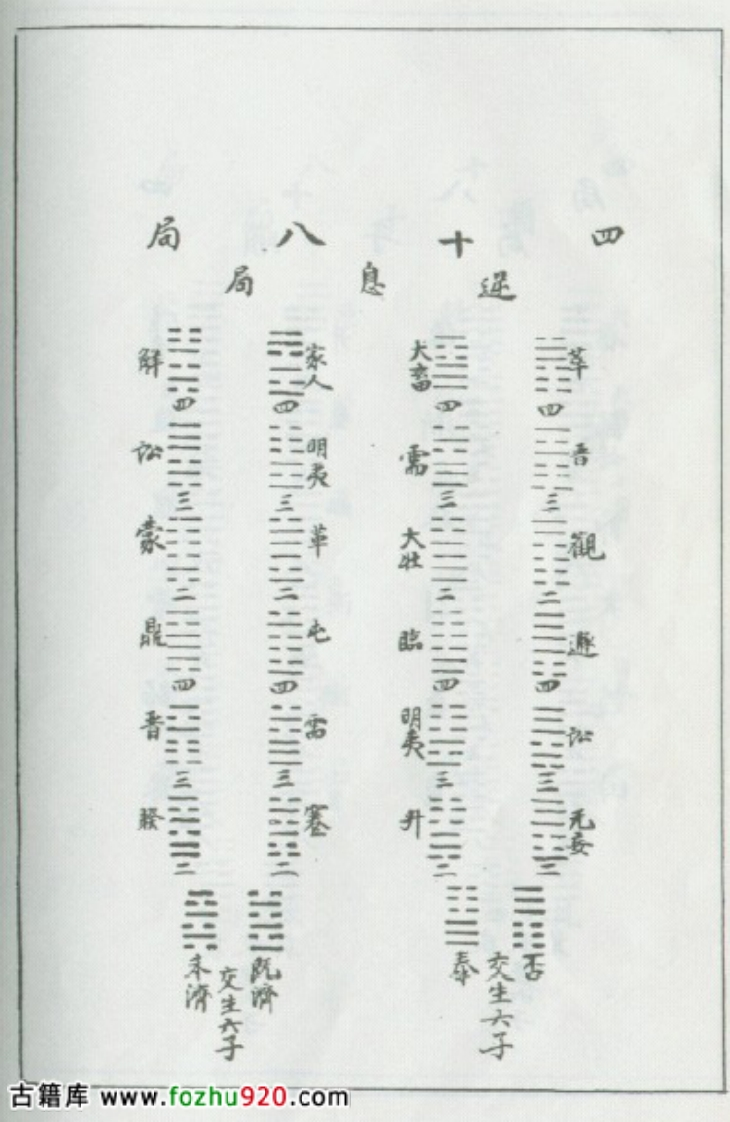 四十八局
逆息局
萃
四
晋
三
觀
二
遯
四
訟
三
无妄
二
否
交生六子
泰
大畜
四
需
三
大壯
二
臨
四
明夷
三
升
二
家人
四
明夷
三
革
二
屯
四
需
三
蹇
二
既濟
交生六子
未濟
解
四
訟
三
蒙
二
鼎
四
晋
三
睽
二
古籍库 www.fozhu920.com